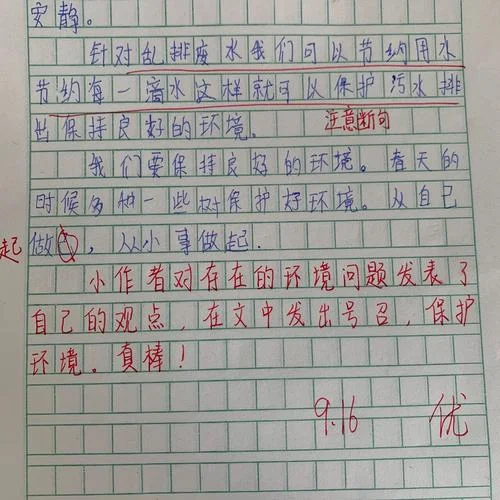 安静。
针对乱排废水我们可以节约用水
节约每一滴水这样就可以保护污水排
出保持良好的环境。
注意断句
我们要保持良好的环境。春天的
时候多种一些树保护好环境。从自己
起
做, 从小事做起.
小作者对存在的环境问题发表了
自己的观点，在文中发出号召，保护
环境。真棒！
9.16 优